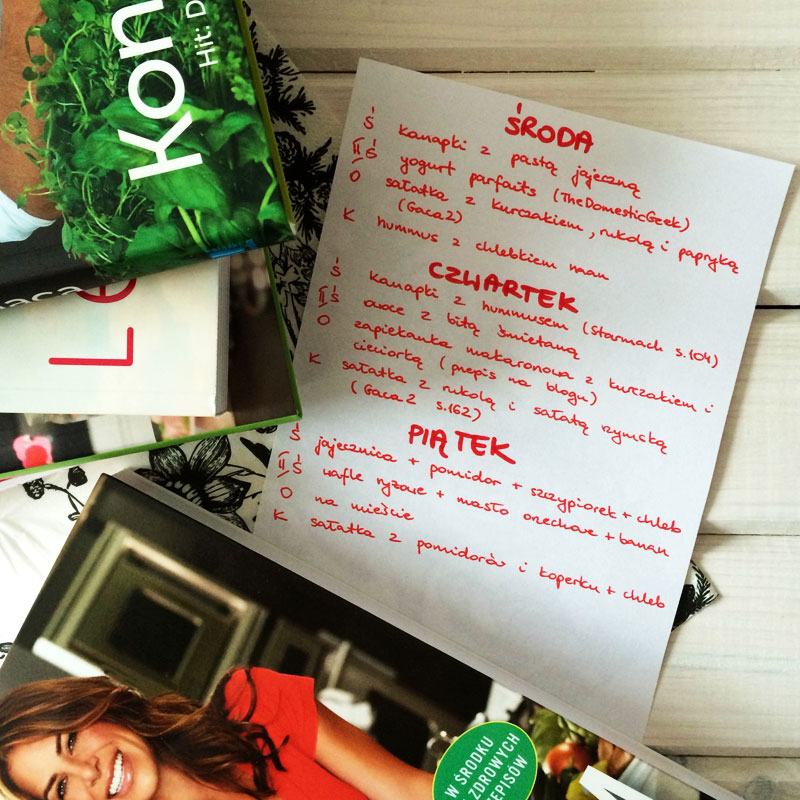 Kon
Hit: D
aca
Le
ŚRODA
Ś kanapki z pastą jajeczną
II Ś yogurt parfaits (TheDomesticGeek)
O sałatka z kurczakiem, rukolą i papryką
(Gaca2)
K hummus z chlebkiem naan
CZWARTEK
Ś kanapki z hummusem (Starmach s.104)
II Ś owoce z bitą śmietaną
O zapiekanka makaronowa z kurczakiem i
cieciorką (przepis na blogu)
K sałatka z rukolą i sałatą rzymską
(Gaca2 s.162)
PIĄTEK
Ś jajecznica + pomidor + szczypiorek + chleb
II Ś wafle ryżowe + masło orzechowe + banan
O na mieście
K sałatka z pomidorów i koperku + chleb
W ŚRODKU
ZDROWYCH
EPISÓW